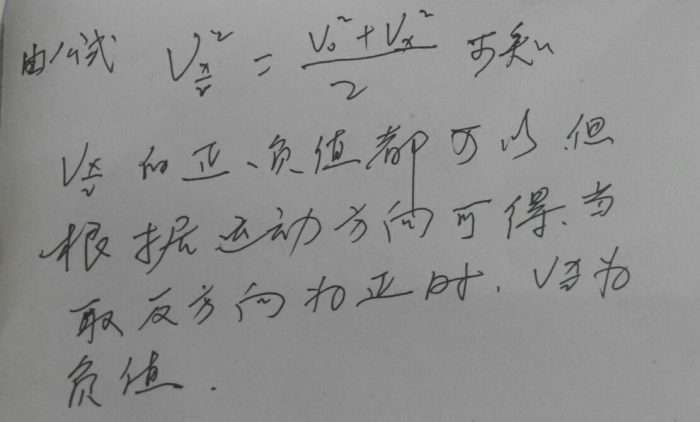 由公式 V_{x/2}^2 = (V_0^2 + V_x^2)/2 可知
V_{x/2} 的正、负值都可以,但
根据运动方向可得,当
取反方向为正时,V_{x/2}为
负值.